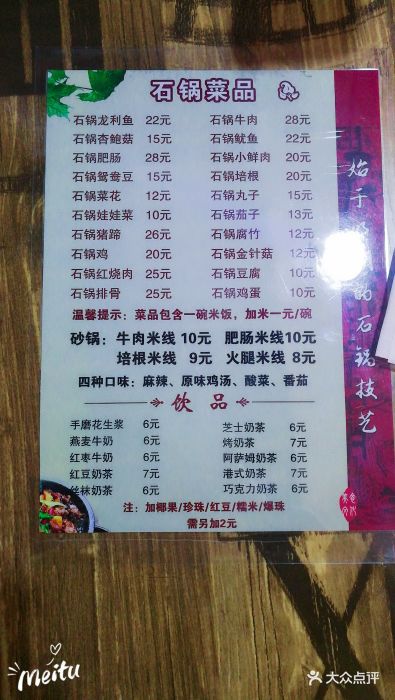 石锅菜品
石锅龙利鱼 22元 石锅牛肉 28元
石锅杏鲍菇 15元 石锅鱿鱼 22元
石锅肥肠 28元 石锅小鲜肉 20元
石锅鸳鸯豆 15元 石锅培根 20元
石锅菜花 12元 石锅丸子 15元
石锅娃娃菜 10元 石锅茄子 13元
石锅猪蹄 26元 石锅腐竹 12元
石锅鸡 20元 石锅金针菇 12元
石锅红烧肉 25元 石锅豆腐 10元
石锅排骨 25元 石锅鸡蛋 10元
温馨提示：菜品包含一碗米饭，加米一元/碗
砂锅：牛肉米线 10元 肥肠米线10元
培根米线 9元 火腿米线 8元
四种口味：麻辣、原味鸡汤、酸菜、番茄
饮品
手磨花生浆 6元 芝士奶茶 6元
燕麦牛奶 6元 烤奶茶 7元
红枣牛奶 6元 阿萨姆奶茶 6元
红豆奶茶 7元 港式奶茶 7元
丝袜奶茶 6元 巧克力奶茶 6元
注：加椰果/珍珠/红豆/糯米/爆珠
需另加2元
始于
韵石锅技艺
Meitu
大众点评